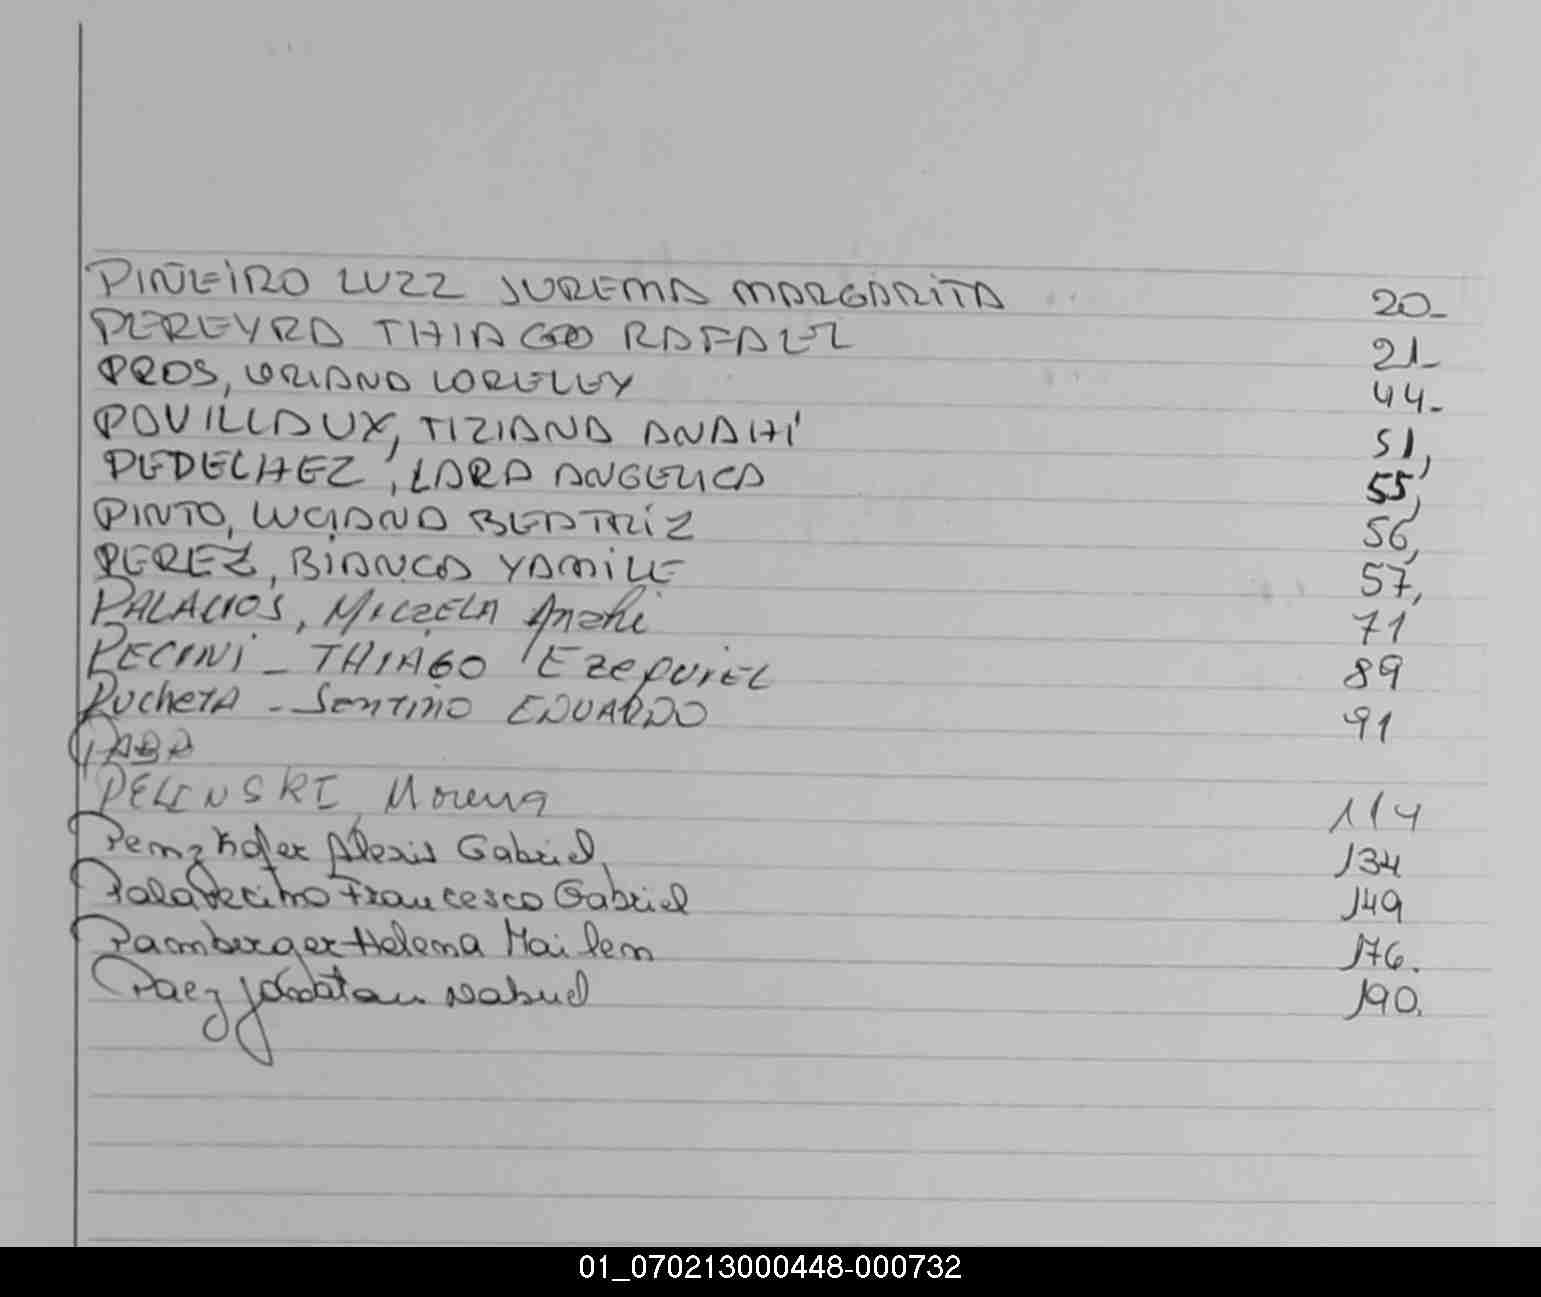 PIÑEIRO LUZZ JUREMA MARGARITA 20-
PEREYRA THIAGO RAFAEL 21-
PROS, ORIANA LORELEY 44-
POUILLAUX, TIZIANA ANAHI 51,
PEDELHEZ, LARA ANGELICA 55,
PINTO, LUCIANA BEATRIZ 56,
PEREZ, BIANCA YAMILE 57,
PALACIOS, MICAELA Anahi 71
PECINI - THIAGO EZEQUIEL 89
PucheTA - Santino EDUARDO 91
PELINSKI, Morena 114
Pernzhofer Alexis Gabriel, 134
Palavecino Francesco Gabriel 149
Pamberger Helena Mailen 176.
Paez Jonatan Nahuel 190.
01_070213000448-000732